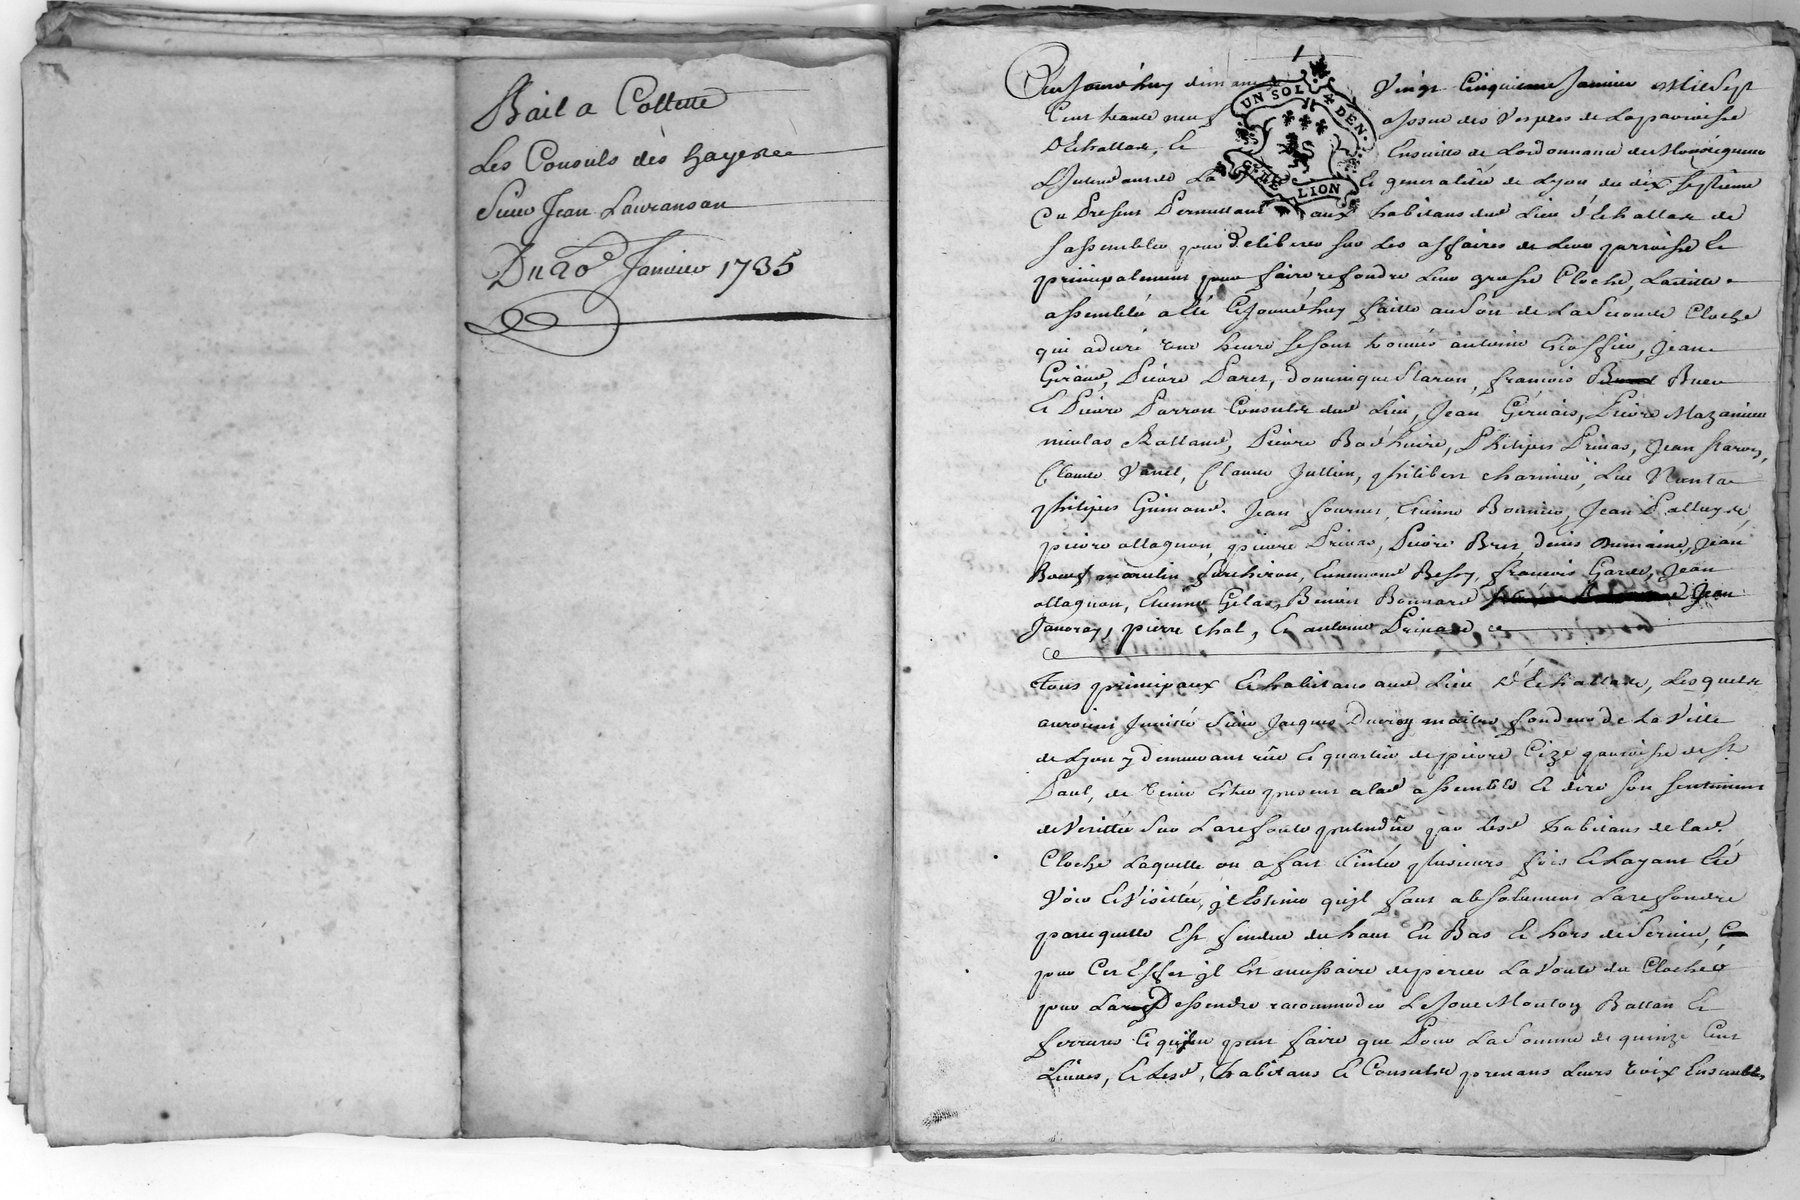 Bail a Collecte
Les Consuls des hayes
Sieur Jean Lauranson
Du 20e Janvier 1735
UN SOL 4 DEN.
GNLTE LION
Ce Jourd'huy dimanche Vingt Cinquieme Janvier Mil Sept
Cent trante neuf a Jssue des Vespres de La parroisse
D'Echallas, Et Ensuitte de Lordonnance de Monseigneur
L'Jntendant de La generalité de Lyon du dix Septième
Du Present Permettant aux habitans dud Lieu d'Echallas de
sassembler pour deliberer sur Les affaires de Leur parroisse Et
principalement pour faire refondre Leur grosse Cloche, Laditte
assemblée a été Cejourd'huy faitte au Son de La Seconde Cloche
qui a duré une heure Se sont trouvés antoine
Pierre Paret, dominique Staron, francois
Et Pierre Parron Consuls dud Lieu, Jean Gervais, Pierre Mazanieu
nicolas Pierre Philipes Prinas, Jean Staron,
Claude Vanel, Claude Jullien, philibert charmier, Luc Nanta
philipes Guimond. Jean fournel, Etienne Bonnier, Jean Palluy
pierre allagnon, pierre Prinas, Pierre Bret, denis Dumaine, Jean
Boeuf Ennemond Bessy, francois Garde, Jean
allagnon, Etienne Gelas, Benoit Bonnard Jean
Janoray, pierre chol, Et antoine Prinas ce
ce
Tous principaux Et habitans aud Lieu d'Echallas, Lesquels
auroient Jnvitté Sieur Jacques Ducray maitre fondeur de La Ville
de Lyon y demeurant rue Et quartier de pierre Cize parroisse de St
Paul, de Venir Estre present a lad assemblée Et dire son sentiment
de Verittée Sur La refonte pretendüe par Lesd habitans de lad.
Cloche Laquelle on a fait tinter plusieurs fois Et Layant Eté
Voir Et Visittée, jl Estime qujl faut absolument La refondre
parcequelle Est fendue du haut En Bas Et hors de Service,
pour Cet Effet jl Est necessaire de percer La Voute du Clocher
pour La Dessendre racommoder Le Joue Mouton Battan Et
ferrures Et qujl ne peut faire que Pour La Somme de quinze Cent
Livres, Et Lesd, habitans Et Consuls prenans Leurs Voix Ensemble